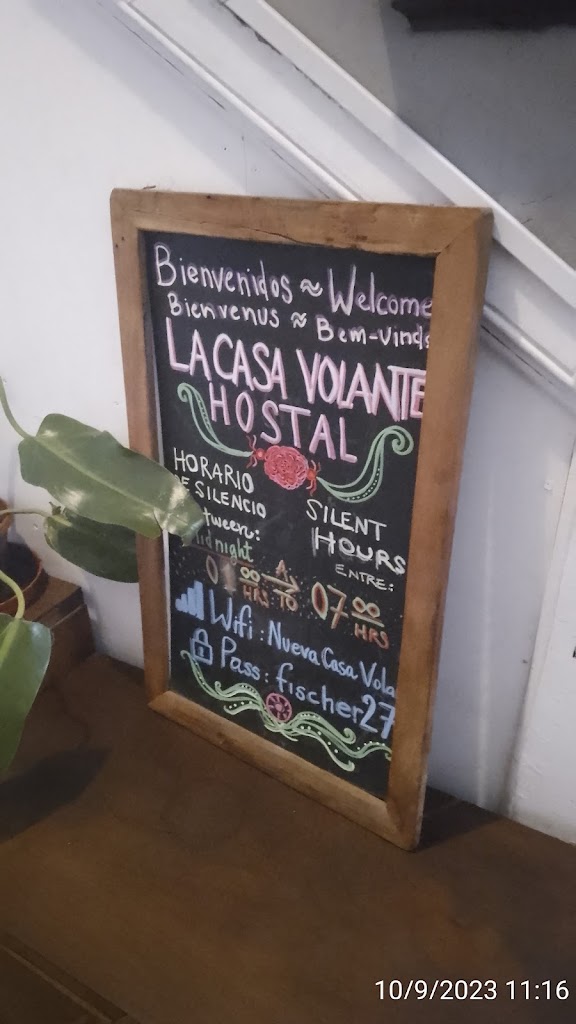 Bienvenidos ≈ Welcome
Bienvenus ≈ Bem-vindo
LA CASA VOLANTE
HOSTAL
HORARIO
DE SILENCIO
between:
midnight
SILENT
HOURS
ENTRE:
01 00 HRS A TO 07 00 HRS
Wifi: Nueva Casa Vola
Pass: fischer27
10/9/2023 11:16